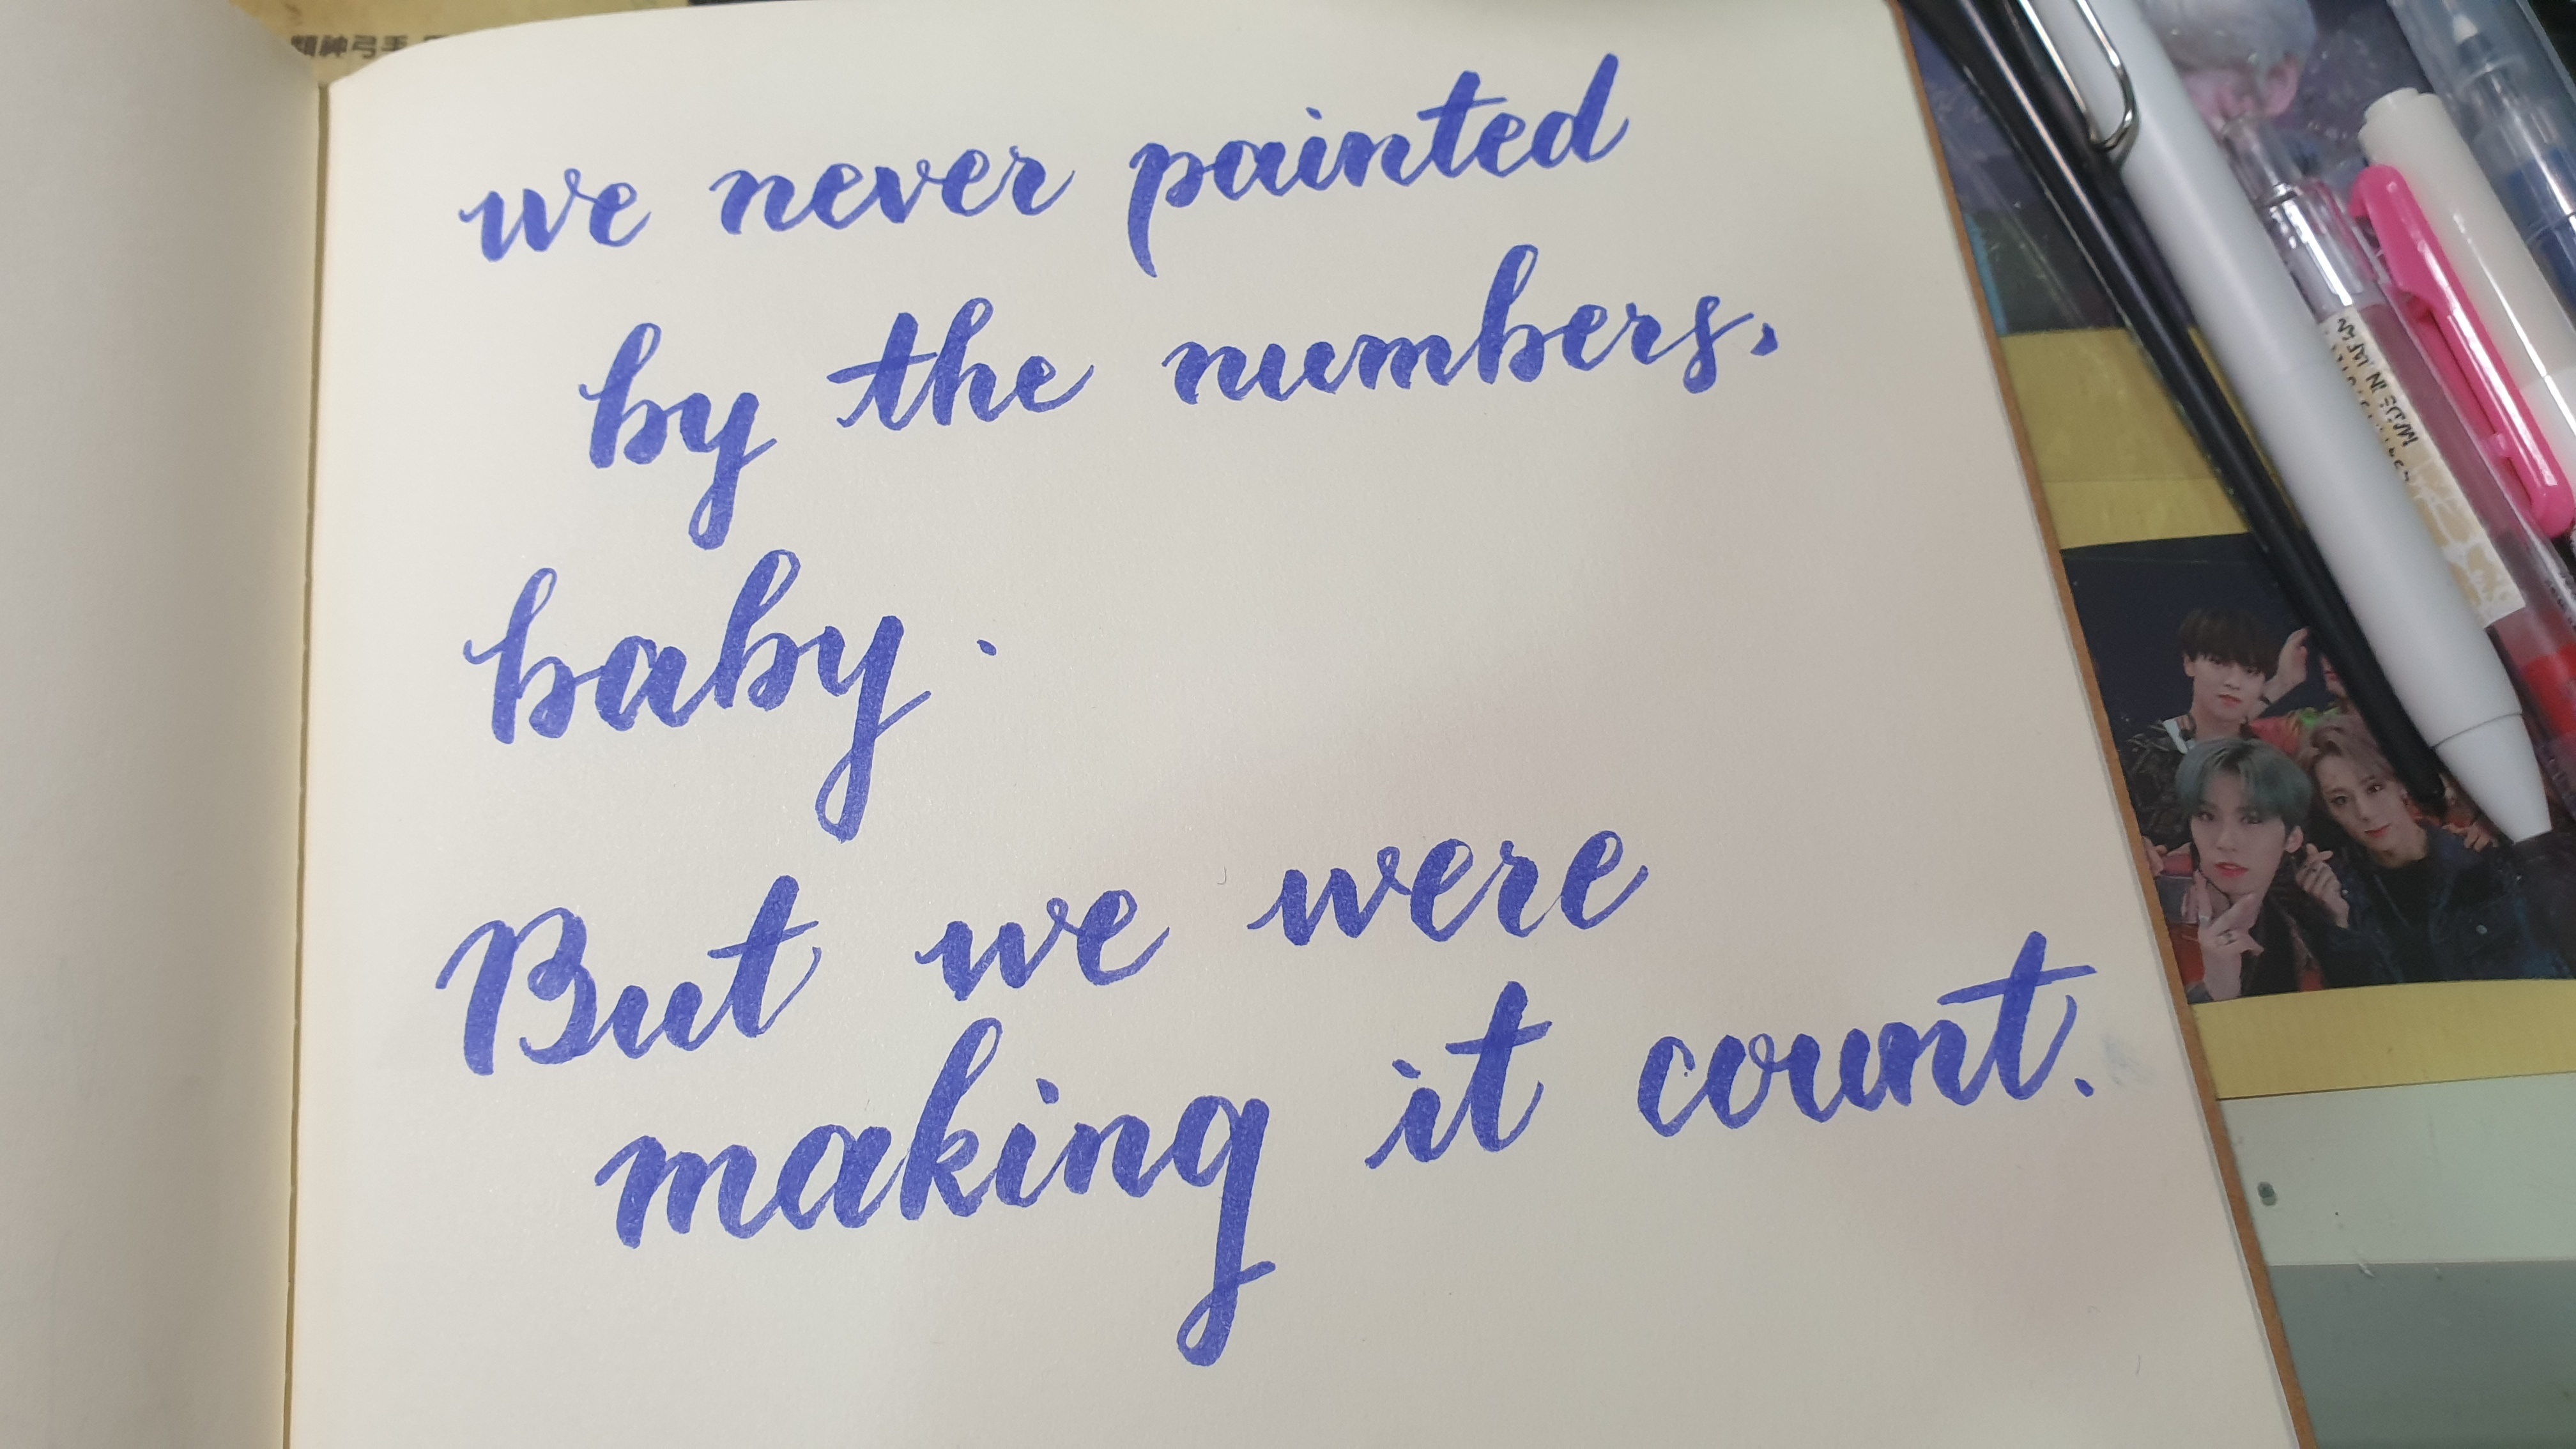 類神弓手
we never painted
by the numbers,
baby.
But we were
making it count.